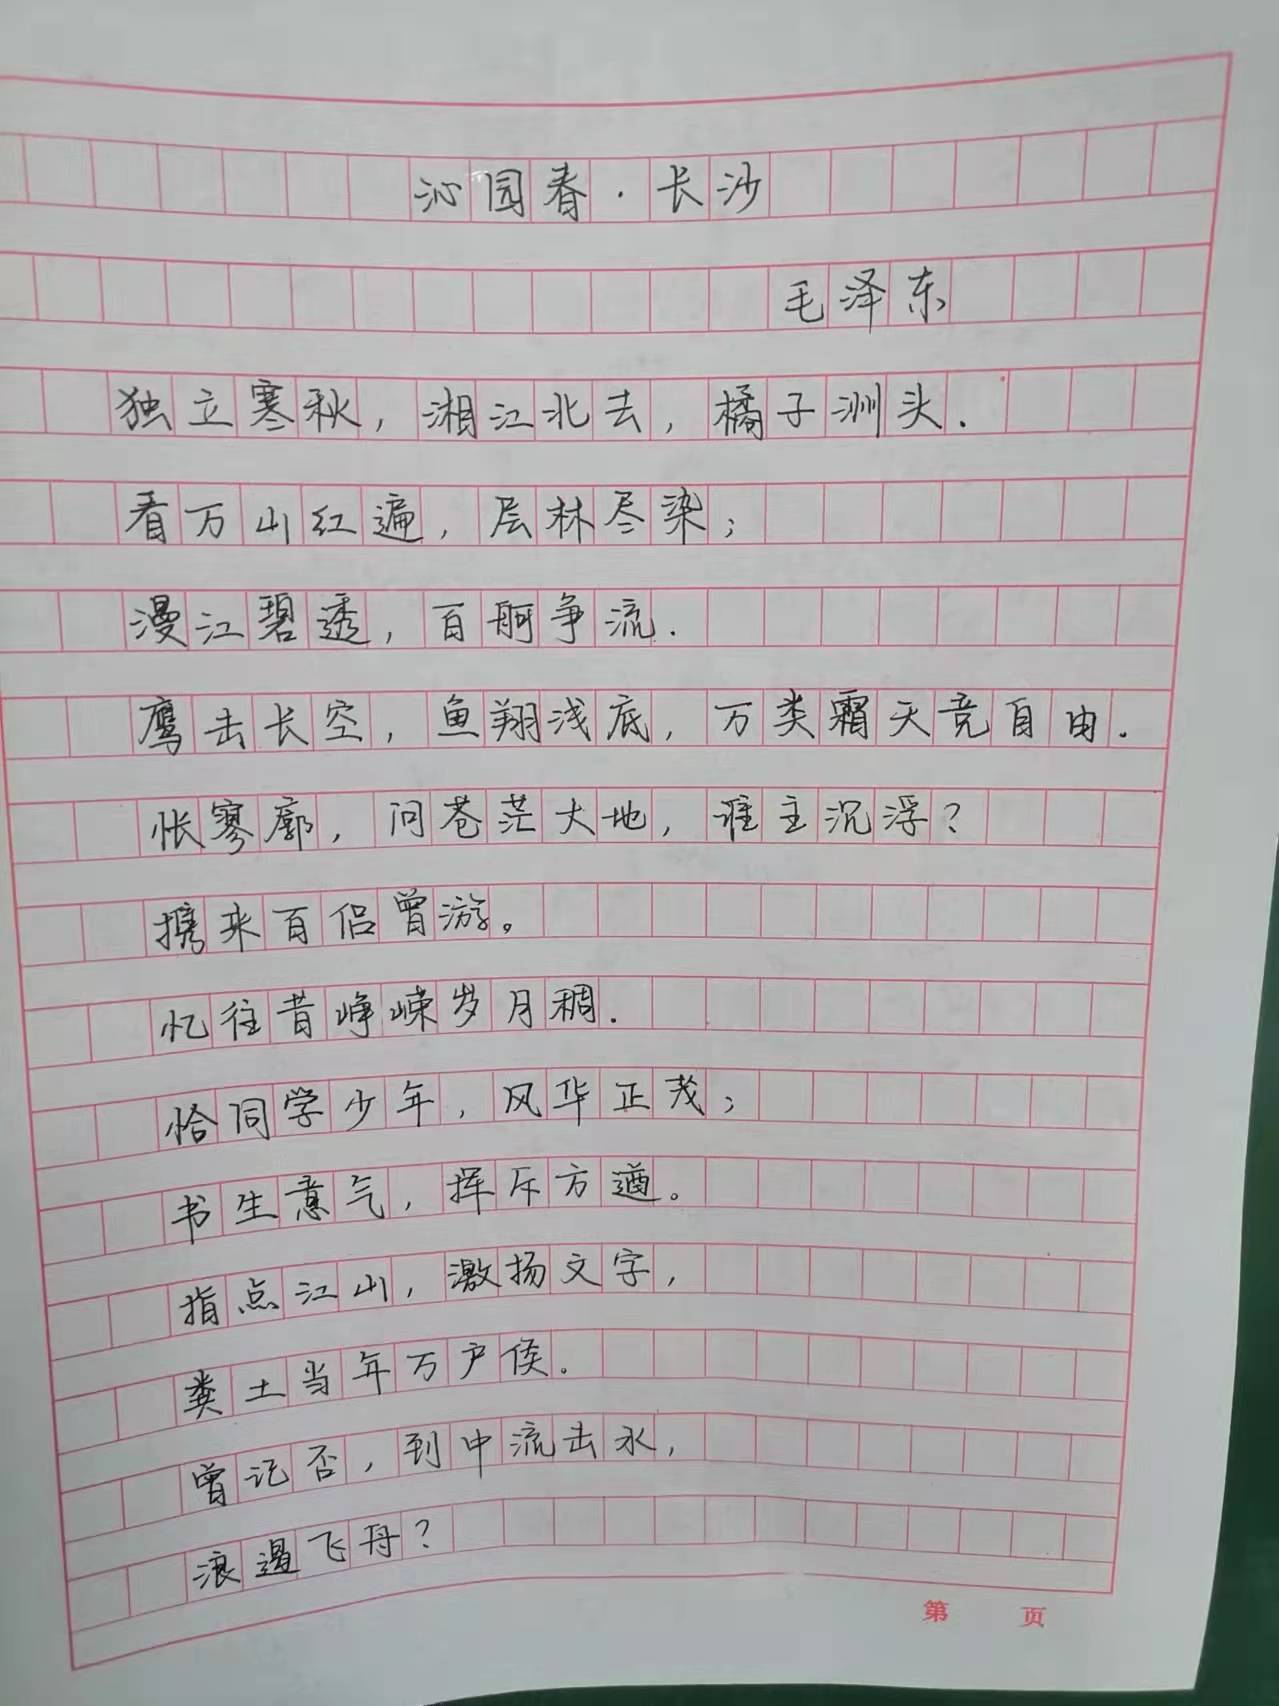 沁园春·长沙
毛泽东
独立寒秋,湘江北去,橘子洲头.
看万山红遍,层林尽染;
漫江碧透,百舸争流.
鹰击长空,鱼翔浅底,万类霜天竞自由.
怅寥廓,问苍茫大地,谁主沉浮?
携来百侣曾游。
忆往昔峥嵘岁月稠.
恰同学少年,风华正茂;
书生意气,挥斥方遒。
指点江山,激扬文字,
粪土当年万户侯.
曾记否,到中流击水,
浪遏飞舟?
第 页